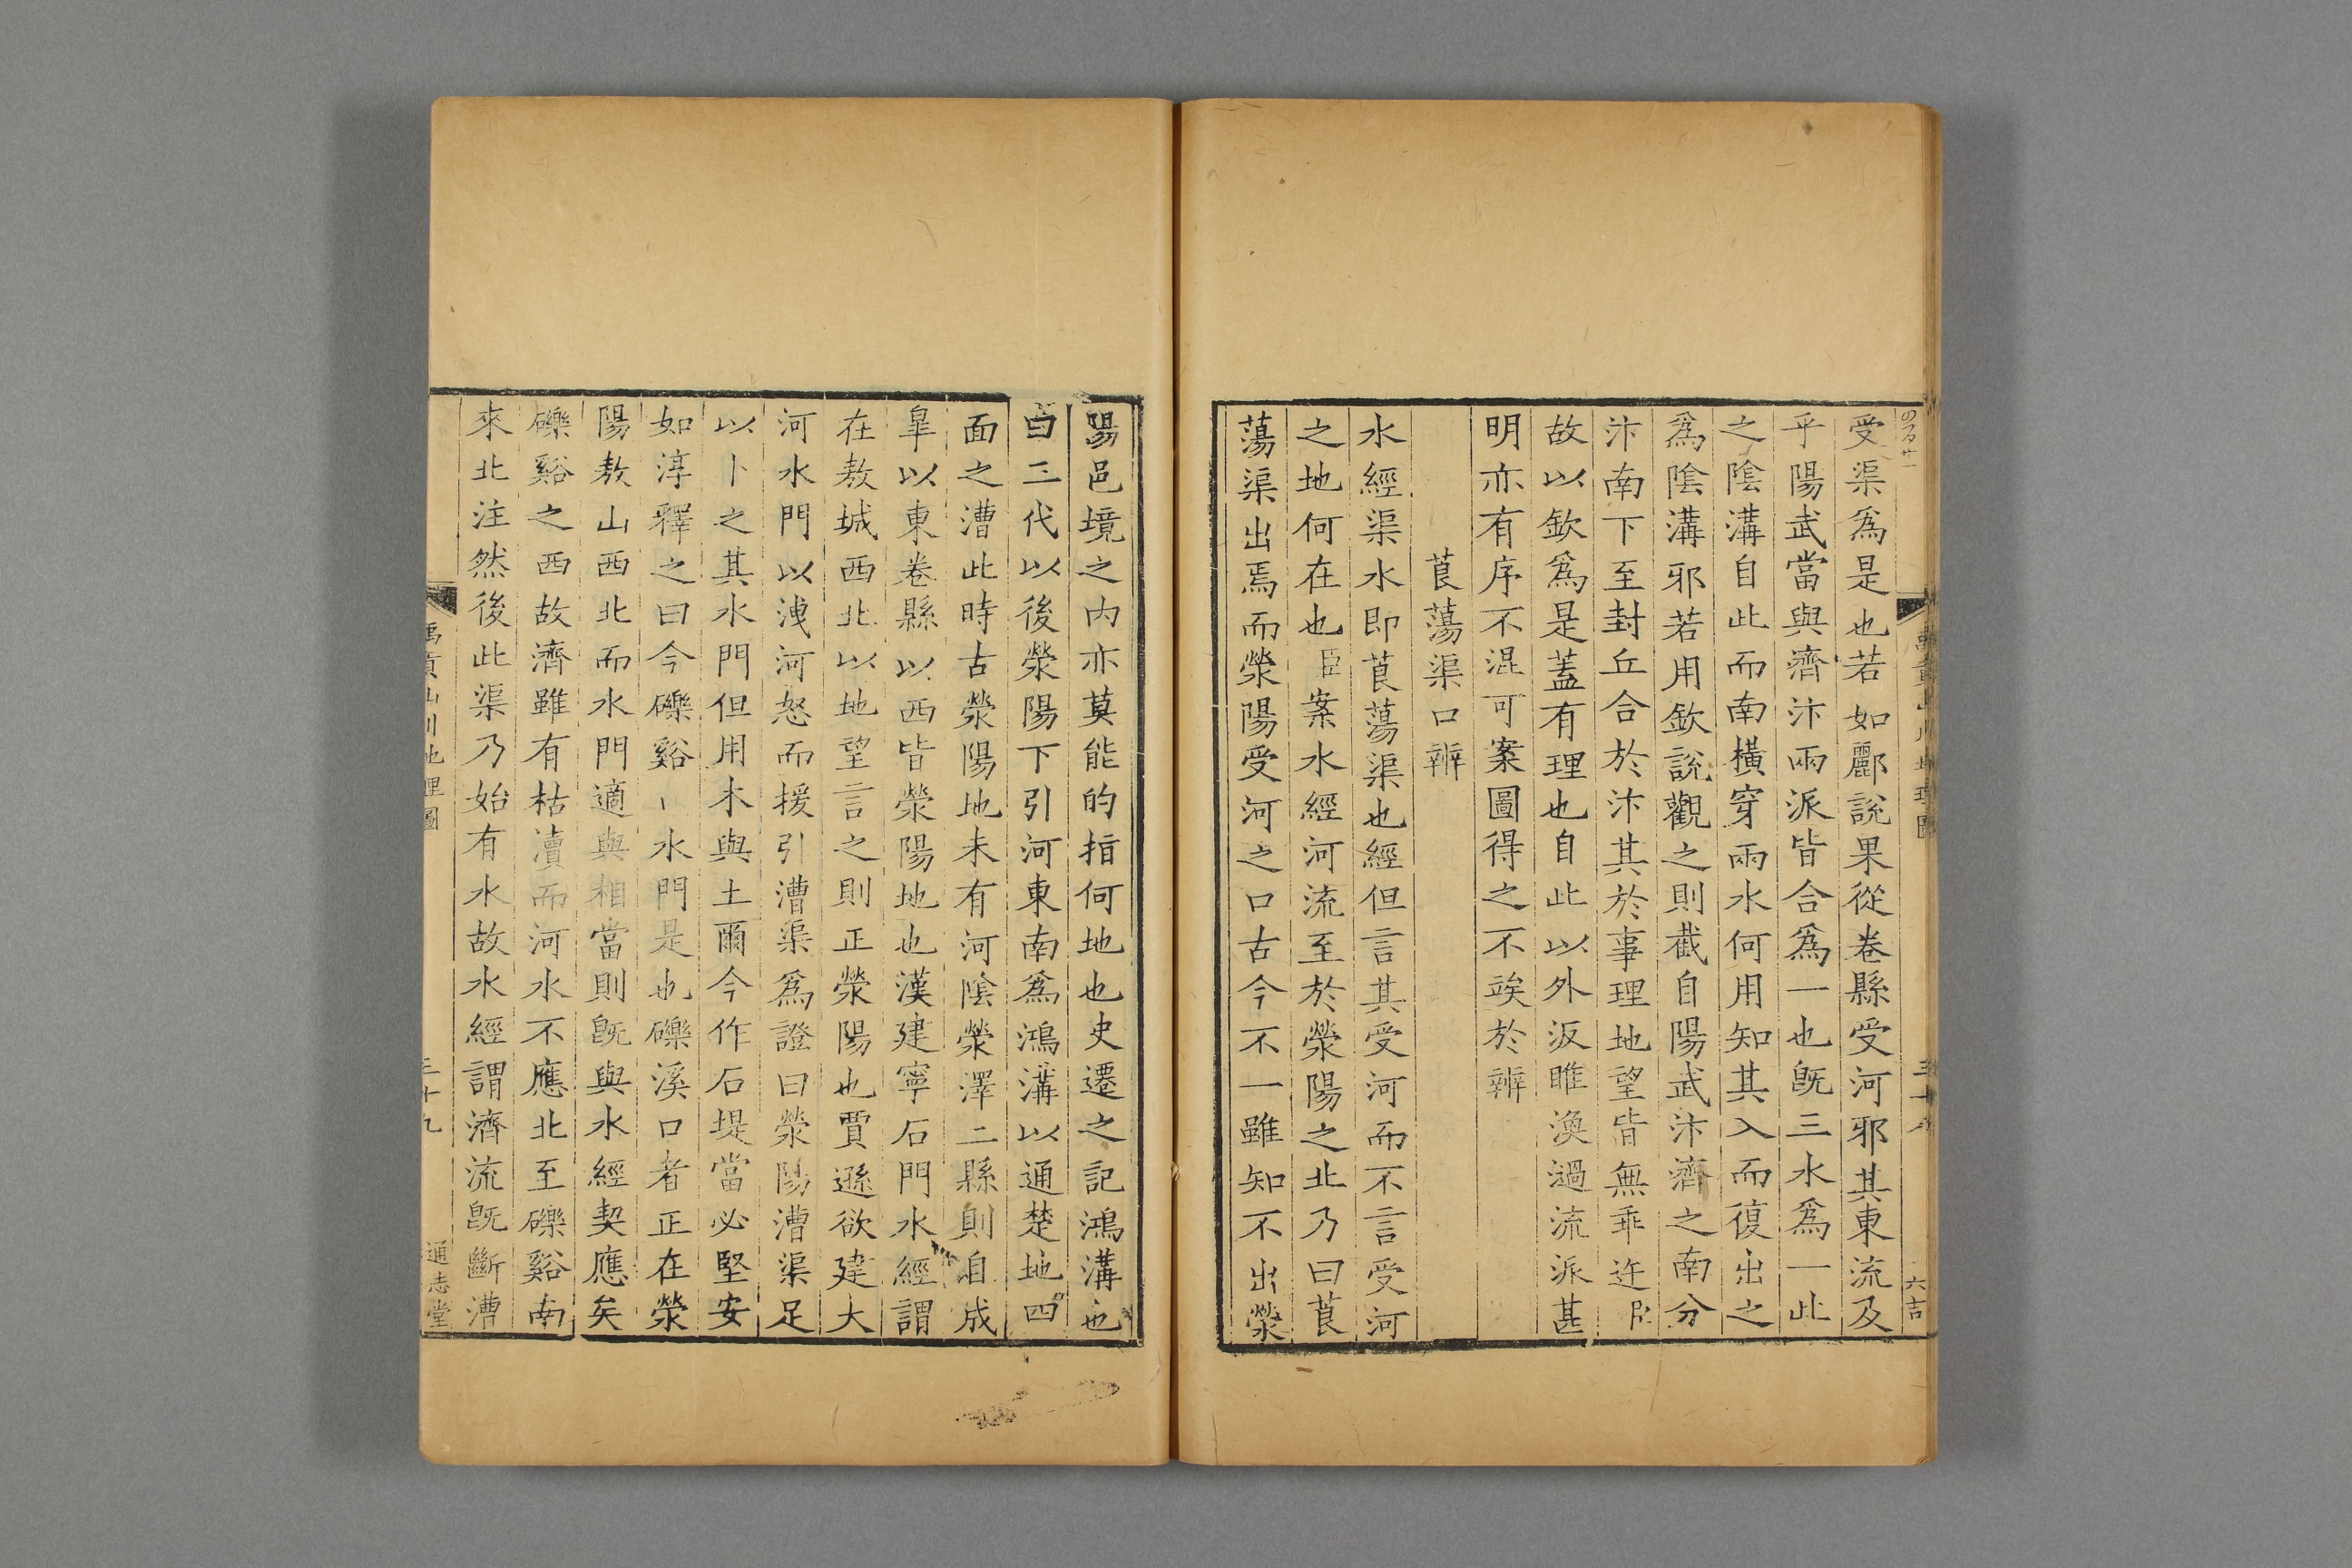 受渠爲是也若如酈說果從卷縣受河邪其東流及
乎陽武當與濟汴兩派皆合爲一也旣三水爲一此
之陰溝自此而南橫穿兩水何用知其入而復出之
爲陰溝邪若用欽說觀之則截自陽武汴濟之南分
汴南下至封丘合於汴其於事理地望皆無乖迕臣
故以欽爲是蓋有理也自此以外汳睢渙過流派甚
明亦有序不混可案圖得之不竢於辨
莨蕩渠口辨
水經渠水即莨蕩渠也經但言其受河而不言受河
之地何在也臣案水經河流至於滎陽之北乃曰莨
蕩渠出焉而滎陽受河之口古今不一雖知不出滎
六吉
陽邑境之內亦莫能的指何地也史遷之記鴻溝也
曰三代以後滎陽下引河東南爲鴻溝以通楚地四
面之漕此時古滎陽地未有河陰滎澤二縣則自成
皐以東卷縣以西皆滎陽地也漢建寧石門水經謂
在敖城西北以地望言之則正滎陽也賈遜欲建大
河水門以洩河怒而援引漕渠爲證曰滎陽漕渠足
以卜之其水門但用木與土爾今作石堤當必堅安
如淳釋之曰今礫谿口水門是也礫溪口者正在滎
陽敖山西北而水門適與相當則旣與水經契應矣
礫谿之西故濟雖有枯瀆而河水不應北至礫谿南
來北注然後此渠乃始有水故水經謂濟流旣斷漕
禹貢山川地理圖
三十九
通志堂